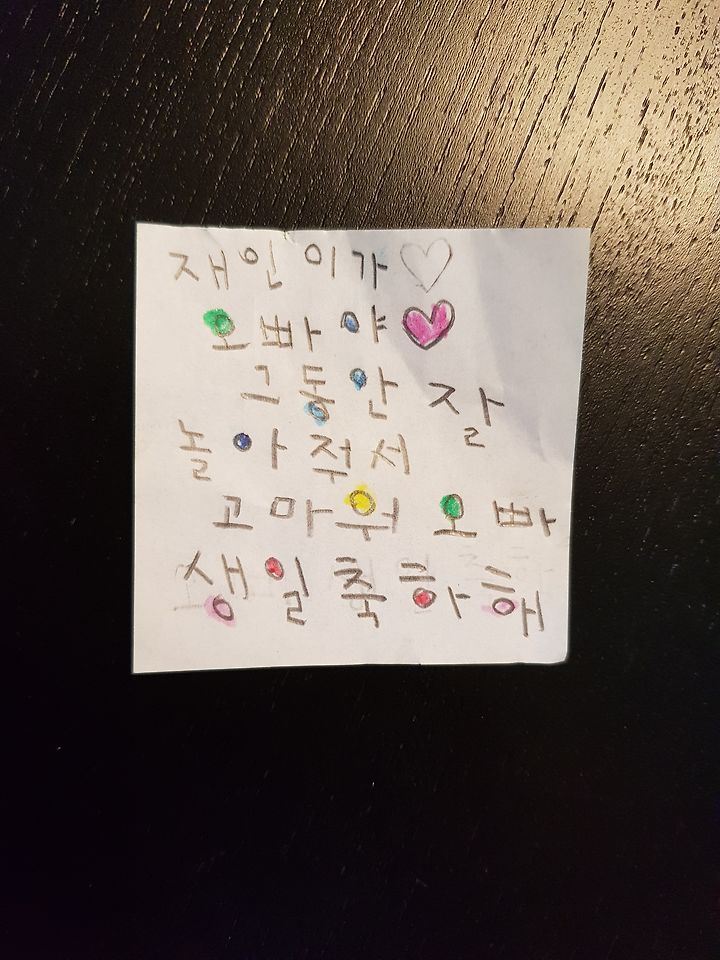 재인이가♡
오빠야♥
그동안 잘
놀아주서
고마워 오빠
생일축하해